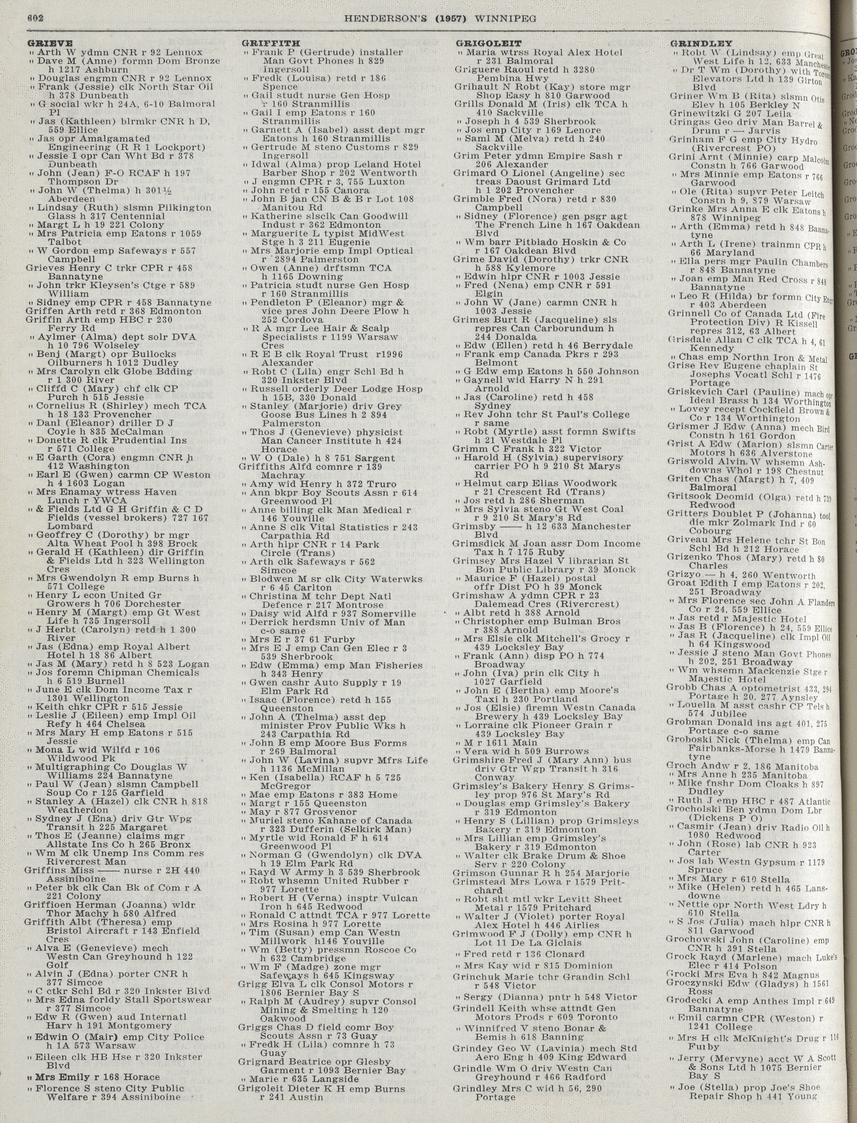 602
HENDERSON'S (1957) WINNIPEG
GRIEVE
" Arth W ydmn CNR r 92 Lennox
" Dave M (Anne) formn Dom Bronze
h 1217 Ashburn
" Douglas engmn CNR r 92 Lennox
" Frank (Jessie) clk North Star Oil
h 378 Dunbeath
" G social wkr h 24A, 6-10 Balmoral
Pl
" Jas (Kathleen) blrmkr CNR h D,
559 Ellice
" Jas opr Amalgamated
Engineering (R R 1 Lockport)
" Jessie I opr Can Wht Bd r 378
Dunbeath
" John (Jean) F-O RCAF h 197
Thompson Dr
" John W (Thelma) h 301½
Aberdeen
" Lindsay (Ruth) slsmn Pilkington
Glass h 317 Centennial
" Margt L h 19 221 Colony
" Mrs Patricia emp Eatons r 1059
Talbot
" W Gordon emp Safeways r 557
Campbell
Grieves Henry C trkr CPR r 458
Bannatyne
" John trkr Kleysen's Ctge r 589
William
" Sidney emp CPR r 458 Bannatyne
Griffen Arth retd r 368 Edmonton
Griffin Arth emp HBC r 230
Ferry Rd
" Aylmer (Alma) dept solr DVA
h 10 796 Wolseley
" Benj (Margt) opr Bullocks
Oilburners h 1012 Dudley
" Mrs Carolyn clk Globe Bdding
r 1 300 River
" Cliffd C (Mary) chf clk CP
Purch h 515 Jessie
" Cornelius R (Shirley) mech TCA
h 18 133 Provencher
" Danl (Eleanor) driller D J
Coyle h 835 McCalman
" Donette R clk Prudential Ins
r 571 College
" E Garth (Cora) engmn CNR h
412 Washington
" Earl E (Gwen) carmn CP Weston
h 4 1603 Logan
" Mrs Enamay wtress Haven
Lunch r YWCA
" & Fields Ltd G H Griffin & C D
Fields (vessel brokers) 727 167
Lombard
" Geoffrey C (Dorothy) br mgr
Alta Wheat Pool h 398 Brock
" Gerald H (Kathleen) dir Griffin
& Fields Ltd h 323 Wellington
Cres
" Mrs Gwendolyn R emp Burns h
571 College
" Henry L econ United Gr
Growers h 706 Dorchester
" Henry M (Margt) emp Gt West
Life h 735 Ingersoll
" J Herbt (Carolyn) retd h 1 300
River
" Jas (Edna) emp Royal Albert
Hotel h 18 86 Albert
" Jas M (Mary) retd h 8 523 Logan
" Jos foremn Chipman Chemicals
h 6 519 Burnell
" June E clk Dom Income Tax r
1301 Wellington
" Keith chkr CPR r 515 Jessie
" Leslie J (Eileen) emp Impl Oil
Refy h 464 Chelsea
" Mrs Mary H emp Eatons r 515
Jessie
" Mona L wid Wilfd r 106
Wildwood Pk
" Multigraphing Co Douglas W
Williams 224 Bannatyne
" Paul W (Jean) slsmn Campbell
Soup Co r 125 Garfield
" Stanley A (Hazel) clk CNR h 818
Weatherdon
" Sydney J (Ena) driv Gtr Wpg
Transit h 225 Margaret
" Thos E (Jeanne) claims mgr
Allstate Ins Co h 265 Bronx
" Wm M clk Unemp Ins Comm res
Rivercrest Man
Griffins Miss —— nurse r 2H 440
Assiniboine
" Peter bk clk Can Bk of Com r A
221 Colony
Griffioen Herman (Joanna) wldr
Thor Machy h 580 Alfred
Griffith Albt (Theresa) emp
Bristol Aircraft r 143 Enfield
Cres
" Alva E (Genevieve) mech
Westn Can Greyhound h 122
Golf
" Alvin J (Edna) porter CNR h
377 Simcoe
" C ctkr Schl Bd r 320 Inkster Blvd
" Mrs Edna forldy Stall Sportswear
r 377 Simcoe
" Edw R (Gwen) aud Internatl
Harv h 191 Montgomery
" Edwin O (Mair) emp City Police
h 1A 573 Warsaw
" Eileen clk HB Hse r 320 Inkster
Blvd
" Mrs Emily r 168 Horace
" Florence S steno City Public
Welfare r 394 Assiniboine
GRIFFITH
" Frank P (Gertrude) installer
Man Govt Phones h 829
Ingersoll
" Fredk (Louisa) retd r 186
Spence
" Gail studt nurse Gen Hosp
r 160 Stranmillis
" Gail I emp Eatons r 160
Stranmillis
" Garnett A (Isabel) asst dept mgr
Eatons h 160 Stranmillis
" Gertrude M steno Customs r 829
Ingersoll
" Idwal (Alma) prop Leland Hotel
Barber Shop r 202 Wentworth
" J engmn CPR r 3, 755 Luxton
" John retd r 155 Canora
" John B jan CN B & B r Lot 108
Manitou Rd
" Katherine slsclk Can Goodwill
Indust r 362 Edmonton
" Marguerite L typist MidWest
Stge h 3 211 Eugenie
" Mrs Marjorie emp Impl Optical
r 2894 Palmerston
" Owen (Anne) drftsmn TCA
h 1165 Downing
" Patricia studt nurse Gen Hosp
r 160 Stranmillis
" Pendleton P (Eleanor) mgr &
vice pres John Deere Plow h
252 Cordova
" R A mgr Lee Hair & Scalp
Specialists r 1199 Warsaw
Cres
" R E B clk Royal Trust r1996
Alexander
" Robt C (Lila) engr Schl Bd h
320 Inkster Blvd
" Russell orderly Deer Lodge Hosp
h 15B, 330 Donald
" Stanley (Marjorie) driv Grey
Goose Bus Lines h 2 894
Palmerston
" Thos J (Genevieve) physicist
Man Cancer Institute h 424
Horace
" W O (Dale) h 8 751 Sargent
Griffiths Alfd comnre r 139
Machray
" Amy wid Henry h 372 Truro
" Ann bkpr Boy Scouts Assn r 614
Greenwood Pl
" Anne billing clk Man Medical r
146 Youville
" Anne S clk Vital Statistics r 243
Carpathia Rd
" Arth hlpr CNR r 14 Park
Circle (Trans)
" Arth clk Safeways r 562
Simcoe
" Blodwen M sr clk City Waterwks
r 6 45 Carlton
" Christina M tchr Dept Natl
Defence r 217 Montrose
" Daisy wid Alfd r 937 Somerville
" Derrick herdsmn Univ of Man
c-o same
" Mrs E r 37 61 Furby
" Mrs E J emp Can Gen Elec r 3
539 Sherbrook
" Edw (Emma) emp Man Fisheries
h 343 Henry
" Gwen cashr Auto Supply r 19
Elm Park Rd
" Isaac (Florence) retd h 155
Queenston
" John A (Thelma) asst dep
minister Prov Public Wks h
243 Carpathia Rd
" John B emp Moore Bus Forms
r 269 Balmoral
" John W (Lavina) supvr Mfrs Life
h 1136 McMillan
" Ken (Isabella) RCAF h 5 725
McGregor
" Mae emp Eatons r 383 Home
" Margt r 155 Queenston
" May r 877 Grosvenor
" Muriel steno Kahane of Canada
r 323 Dufferin (Selkirk Man)
" Myrtle wid Ronald F h 614
Greenwood Pl
" Norman G (Gwendolyn) clk DVA
h 19 Elm Park Rd
" Rayd W Army h 3 539 Sherbrook
" Robt whsemn United Rubber r
977 Lorette
" Robert H (Verna) insptr Vulcan
Iron h 645 Redwood
" Ronald C attndt TCA r 977 Lorette
" Mrs Rosina h 977 Lorette
" Tim (Susan) emp Can Westn
Millwork h146 Youville
" Wm (Betty) pressmn Roscoe Co
h 632 Cambridge
" Wm F (Madge) zone mgr
Safeways h 645 Kingsway
Grigg Elva L clk Consol Motors r
1806 Bernier Bay S
" Ralph M (Audrey) supvr Consol
Mining & Smelting h 120
Oakwood
Griggs Chas D field comr Boy
Scouts Assn r 73 Guay
" Fredk H (Lila) comnre h 73
Guay
Grignard Beatrice opr Glesby
Garment r 1093 Bernier Bay
" Marie r 635 Langside
Grigoleit Dieter K H emp Burns
r 241 Austin
GRIGOLEIT
" Maria wtrss Royal Alex Hotel
r 231 Balmoral
Griguere Raoul retd h 3280
Pembina Hwy
Grihault N Robt (Kay) store mgr
Shop Easy h 810 Garwood
Grills Donald M (Iris) clk TCA h
410 Sackville
" Joseph h 4 539 Sherbrook
" Jos emp City r 169 Lenore
" Saml M (Melva) carmn CPR h 240
Sackville
Grim Peter ydmn Empire Sash r
206 Alexander
Grimard O Lionel (Angeline) sec
treas Daoust Grimard Ltd
h 1 202 Provencher
Grimble Fred (Nora) retd r 830
Campbell
" Sidney (Florence) gen psgr agt
The French Line h 167 Oakdean
Blvd
" Wm barr Pitblado Hoskin & Co
r 167 Oakdean Blvd
Grime David (Dorothy) trkr CNR
h 588 Kylemore
" Edwin hlpr CNR r 1003 Jessie
" Fred (Nena) emp CNR r 591
Elgin
" John W (Jane) carmn CNR h
1003 Jessie
Grimes Burt R (Jacqueline) sls
repres Can Carborundum h
244 Donalda
" Edw (Ellen) retd h 46 Berrydale
" Frank emp Canada Pkrs r 293
Belmont
" G Edw emp Eatons h 550 Johnson
" Gaynell wid Harry N h 291
Arnold
" Jas (Caroline) retd h 458
Sydney
" Rev John tchr St Paul's College
r same
" Robt (Myrtle) asst formn Swifts
h 21 Westdale Pl
Grimm C Frank h 322 Victor
" Harold H (Sylvia) supervisory
carrier PO h 9 210 St Marys
Rd
" Helmut carp Elias Woodwork
r 21 Crescent Rd (Trans)
" Jos retd h 286 Sherman
" Mrs Sylvia steno Gt West Coal
r 9 210 St Mary's Rd
Grimsby —— h 12 633 Manchester
Blvd
Grimsdick M Joan assr Dom Income
Tax h 7 175 Ruby
Grimsey Mrs Hazel V librarian St
Bon Public Library r 39 Monck
" Maurice F (Hazel) postal
offr Dist PO h 39 Monck
Grimshaw A ydmn CPR r 23
Dalemead Cres (Rivercrest)
" Albt retd h 388 Arnold
" Christopher emp Bulman Bros
r 388 Arnold
" Mrs Elsie clk Mitchell's Grocy r
439 Locksley Bay
" Frank (Ann) disp PO h 774
Broadway
" John (Iva) prin clk City h
1027 Garfield
" John E (Bertha) emp Moore's
Taxi h 230 Portland
" Jos (Elsie) firemn Westn Canada
Brewery h 439 Locksley Bay
" Lorraine clk Pioneer Grain r
439 Locksley Bay
" M r 1611 Main
" Vera wid h 509 Burrows
Grimshire Fred J (Mary Ann) bus
driv Gtr Wgp Transit h 316
Conway
Grimsley's Bakery Henry S Grims-
ley prop 976 St Mary's Rd
" Douglas emp Grimsley's Bakery
r 319 Edmonton
" Henry S (Lillian) prop Grimsleys
Bakery r 319 Edmonton
" Mrs Lillian emp Grimsley's
Bakery r 319 Edmonton
" Walter clk Brake Drum & Shoe
Serv r 220 Colony
Grimson Gunnar R h 254 Marjorie
Grimstead Mrs Lowa r 1579 Prit-
chard
" Robt sht mtl wkr Levitt Sheet
Metal r 1579 Pritchard
" Walter J (Violet) porter Royal
Alex Hotel h 446 Airlies
Grimwood F J (Dolly) emp CNR h
Lot 11 De La Giclais
" Fred retd r 136 Clonard
" Mrs Kay wid r 815 Dominion
Grinchuk Marie tchr Grandin Schl
r 548 Victor
" Sergy (Dianna) pntr h 548 Victor
Grindell Keith whse attndt Gen
Motors Prods r 609 Toronto
" Winnifred V steno Bonar &
Bemis h 618 Banning
Grindey Geo W (Lavinia) mech Std
Aero Eng h 409 King Edward
Grindle Wm O driv Westn Can
Greyhound r 466 Radford
Grindley Mrs C wid h 56, 290
Portage
GRINDLEY
" Robt W (Lindsay) emp Great
West Life h 12, 633 Manchester
" Dr T Wm (Dorothy) with
Elevators Ltd h 139 Girton
Blvd
Griner Wm B (Rita) slsmn Otis
Elev h 105 Berkley N
Grinewitzki G 207 Leila
Gringas Geo driv Man Barrel &
Drum r — Jarvis
Grinham F G emp City Hydro
(Rivercrest PO)
Grini Arnt (Minnie) carp Malcolm
Constn h 766 Garwood
" Mrs Minnie emp Eatons r 766
Garwood
" Ole (Rita) supvr Peter Leitch
Constn h 9, 879 Warsaw
Grinke Mrs Anna E clk Eatons h
878 Winnipeg
" Arth (Emma) retd h 848 Banna-
tyne
" Arth L (Irene) trainmn CPR h
66 Maryland
" Ella pers mgr Paulin Chambers
r 848 Bannatyne
" Joan emp Man Red Cross r 848
Bannatyne
" Leo R (Hilda) br formn City Eng
r 403 Aberdeen
Grinnell Co of Canada Ltd (Fire
Protection Div) R Kissell
repres 312, 63 Albert
Grisdale Allan C clk TCA h 4, 61
Kennedy
" Chas emp Northn Iron & Metal
Grise Rev Eugene chaplain St
Josephs Vocatl Schl r 1476
Portage
Griskevich Carl (Pauline) mach opr
Ideal Brass h 134 Worthington
" Lovey recept Cockfield Brown &
Co r 134 Worthington
Grismer J Edw (Anna) mech Bird
Constn h 161 Gordon
Grist A Edw (Marion) slsmn Carter
Motors h 636 Alverstone
Griswold Alvin W whsemn Ash-
downs Whol r 198 Chestnut
Griten Chas (Margt) h 7, 409
Balmoral
Gritsook Deomid (Olga) retd h 739
Redwood
Gritters Doublet P (Johanna) tool
die mkr Zolmark Ind r 60
Cobourg
Griveau Mrs Helene tchr St Bon
Schl Bd h 212 Horace
Grizenko Thos (Mary) retd h 80
Charles
Grizyo — h 4, 260 Wentworth
Groat Edith I emp Eatons r 202,
251 Broadway
" Mrs Florence sec John A Flanders
Co r 24, 559 Ellice
" Jas retd r Majestic Hotel
" Jas B (Florence) h 24, 559 Ellice
" Jas R (Jacqueline) clk Impl Oil
h 64 Kingswood
" Jessie J steno Man Govt Phones
h 202, 251 Broadway
" Wm whsemn Mackenzie Stge r
Majestic Hotel
Grobb Chas A optometrist 433, 294
Portage h 20, 277 Aynsley
" Louella M asst cashr CP Tels h
574 Jubilee
Grobman Donald ins agt 401, 275
Portage c-o same
Groboski Nick (Thelma) emp Can
Fairbanks-Morse h 1479 Banna-
tyne
Groch Andw r 2, 186 Manitoba
" Mrs Anne h 235 Manitoba
" Mike fnshr Dom Cloaks h 897
Dudley
" Ruth J emp HBC r 487 Atlantic
Grocholski Ben ydmn Dom Lbr
(Dickens P O)
" Casmir (Jean) driv Radio Oil h
1080 Redwood
" John (Rose) lab CNR h 923
Carter
" Jos lab Westn Gypsum r 1179
Spruce
" Mrs Mary r 610 Stella
" Mike (Helen) retd h 465 Lans-
downe
" Nettie opr North West Ldry h
610 Stella
" S Jos (Julia) mach hlpr CNR h
811 Garwood
Grochowski John (Caroline) emp
CNR h 391 Stella
Grock Rayd (Marlene) mach Luke's
Elec r 414 Polson
Grocki Mrs Eva h 842 Magnus
Groczynski Edw (Gladys) h 1561
Ross
Grodecki A emp Anthes Impl r 649
Bannatyne
" Emil carmn CPR (Weston) r
1241 College
" Mrs H clk McKnight's Drug r
Furby
" Jerry (Mervyne) acct W A Scott
& Sons Ltd h 1075 Bernier
Bay S
" Joe (Stella) prop Joe's Shoe
Repair Shop h 441 Young